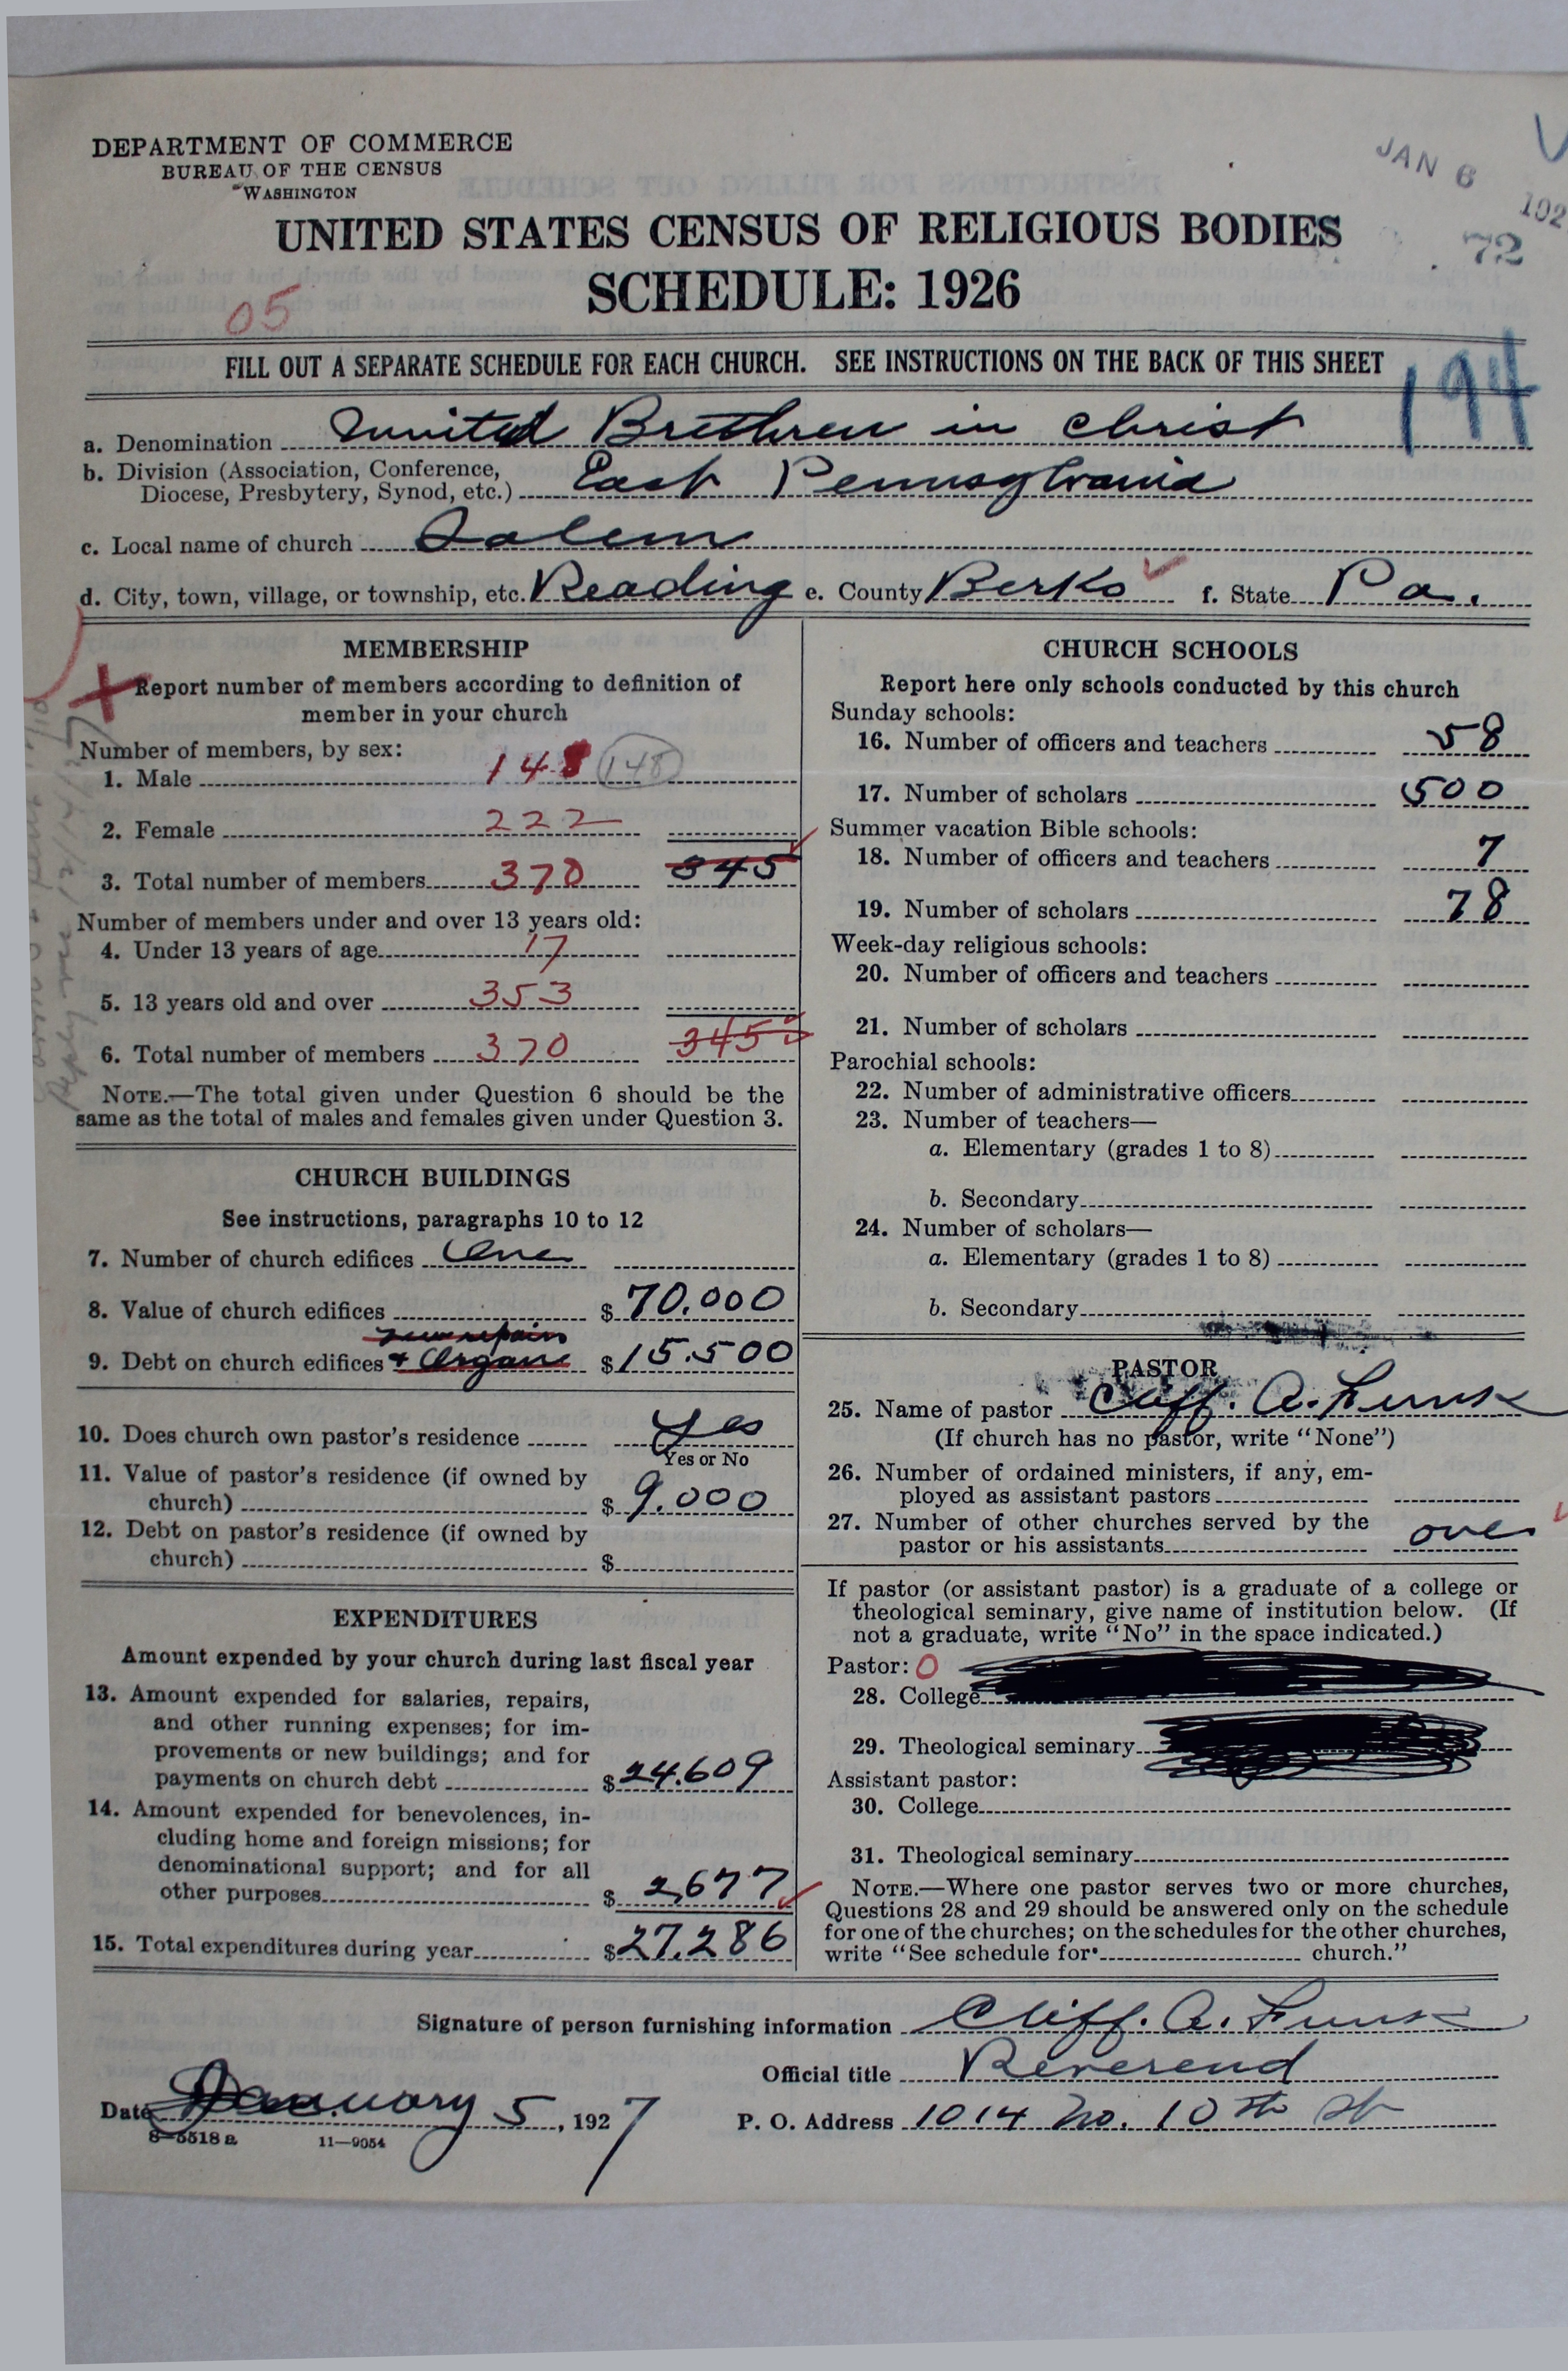 DEPARTMENT OF COMMERCE
BUREAU OF THE CENSUS
WASHINGTON
JAN 6 192
72
UNITED STATES CENSUS OF RELIGIOUS BODIES
SCHEDULE: 1926
05
FILL OUT A SEPARATE SCHEDULE FOR EACH CHURCH. SEE INSTRUCTIONS ON THE BACK OF THIS SHEET
194
a. Denomination United Brethren in Christ
b. Division (Association, Conference, Diocese, Presbytery, Synod, etc.) East Pennsylvania
c. Local name of church Salem
d. City, town, village, or township, etc. Reading e. County Berks f. State Pa.
MEMBERSHIP
Report number of members according to definition of
member in your church
Number of members, by sex:
1. Male 148 148
2. Female 222
3. Total number of members 370 345
Number of members under and over 13 years old:
4. Under 13 years of age 17
5. 13 years old and over 353
6. Total number of members 370 345
NOTE.—The total given under Question 6 should be the
same as the total of males and females given under Question 3.
CHURCH BUILDINGS
See instructions, paragraphs 10 to 12
7. Number of church edifices One
8. Value of church edifices $ 70.000
new repairs
9. Debt on church edifices + Organ $ 15.500
10. Does church own pastor's residence Yes
Yes or No
11. Value of pastor's residence (if owned by
church) $ 9.000
12. Debt on pastor's residence (if owned by
church) $
EXPENDITURES
Amount expended by your church during last fiscal year
13. Amount expended for salaries, repairs,
and other running expenses; for im-
provements or new buildings; and for
payments on church debt $ 24.609
14. Amount expended for benevolences, in-
cluding home and foreign missions; for
denominational support; and for all
other purposes $ 2,677
15. Total expenditures during year $ 27.286
CHURCH SCHOOLS
Report here only schools conducted by this church
Sunday schools:
16. Number of officers and teachers 58
17. Number of scholars 500
Summer vacation Bible schools:
18. Number of officers and teachers 7
19. Number of scholars 78
Week-day religious schools:
20. Number of officers and teachers
21. Number of scholars
Parochial schools:
22. Number of administrative officers
23. Number of teachers—
a. Elementary (grades 1 to 8)
b. Secondary
24. Number of scholars—
a. Elementary (grades 1 to 8)
b. Secondary
PASTOR
25. Name of pastor Cliff. A. Funk
(If church has no pastor, write "None")
26. Number of ordained ministers, if any, em-
ployed as assistant pastors
27. Number of other churches served by the
pastor or his assistants one
If pastor (or assistant pastor) is a graduate of a college or
theological seminary, give name of institution below. (If
not a graduate, write "No" in the space indicated.)
Pastor: 0
28. College
29. Theological seminary
Assistant pastor:
30. College
31. Theological seminary
NOTE.—Where one pastor serves two or more churches,
Questions 28 and 29 should be answered only on the schedule
for one of the churches; on the schedules for the other churches,
write "See schedule for church."
Signature of person furnishing information Cliff. A. Funk
Official title Reverend
Date January 5, 1927 P. O. Address 1014 No. 10th St
8—5518 a 11—9054